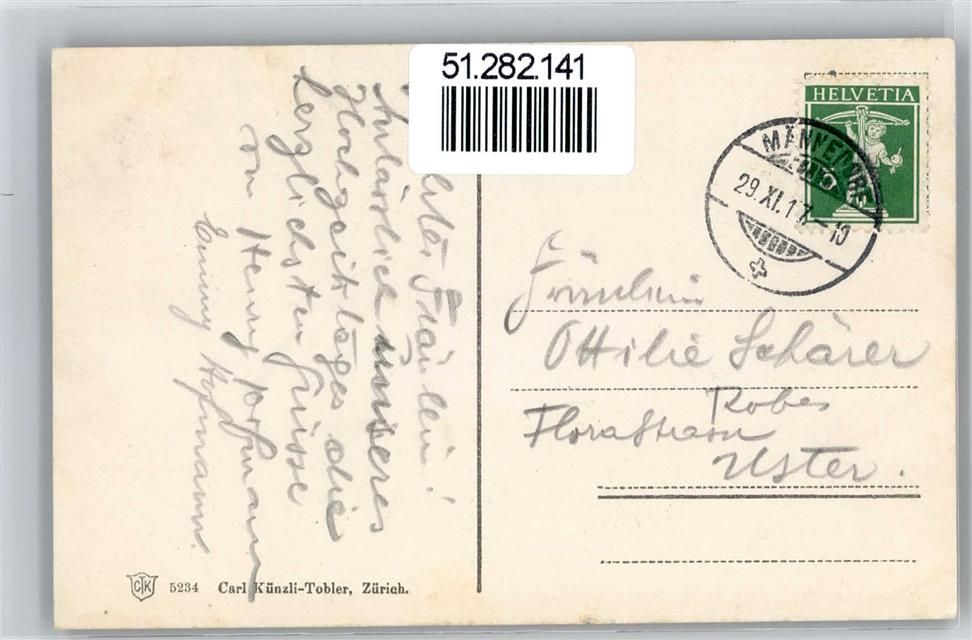 51.282.141
HELVETIA
MÄNNEDORF
29.XI.17.-10
Fräulein!
Anlässlich unseres
Hochzeitstages die
herzlichsten Grüsse
von Henry Hofmann
Emmy Hofmann.
Fräulein
Ottilie Schärer
Robes
Florastrasse
Uster.
CTK 5234 Carl Künzli-Tobler, Zürich.